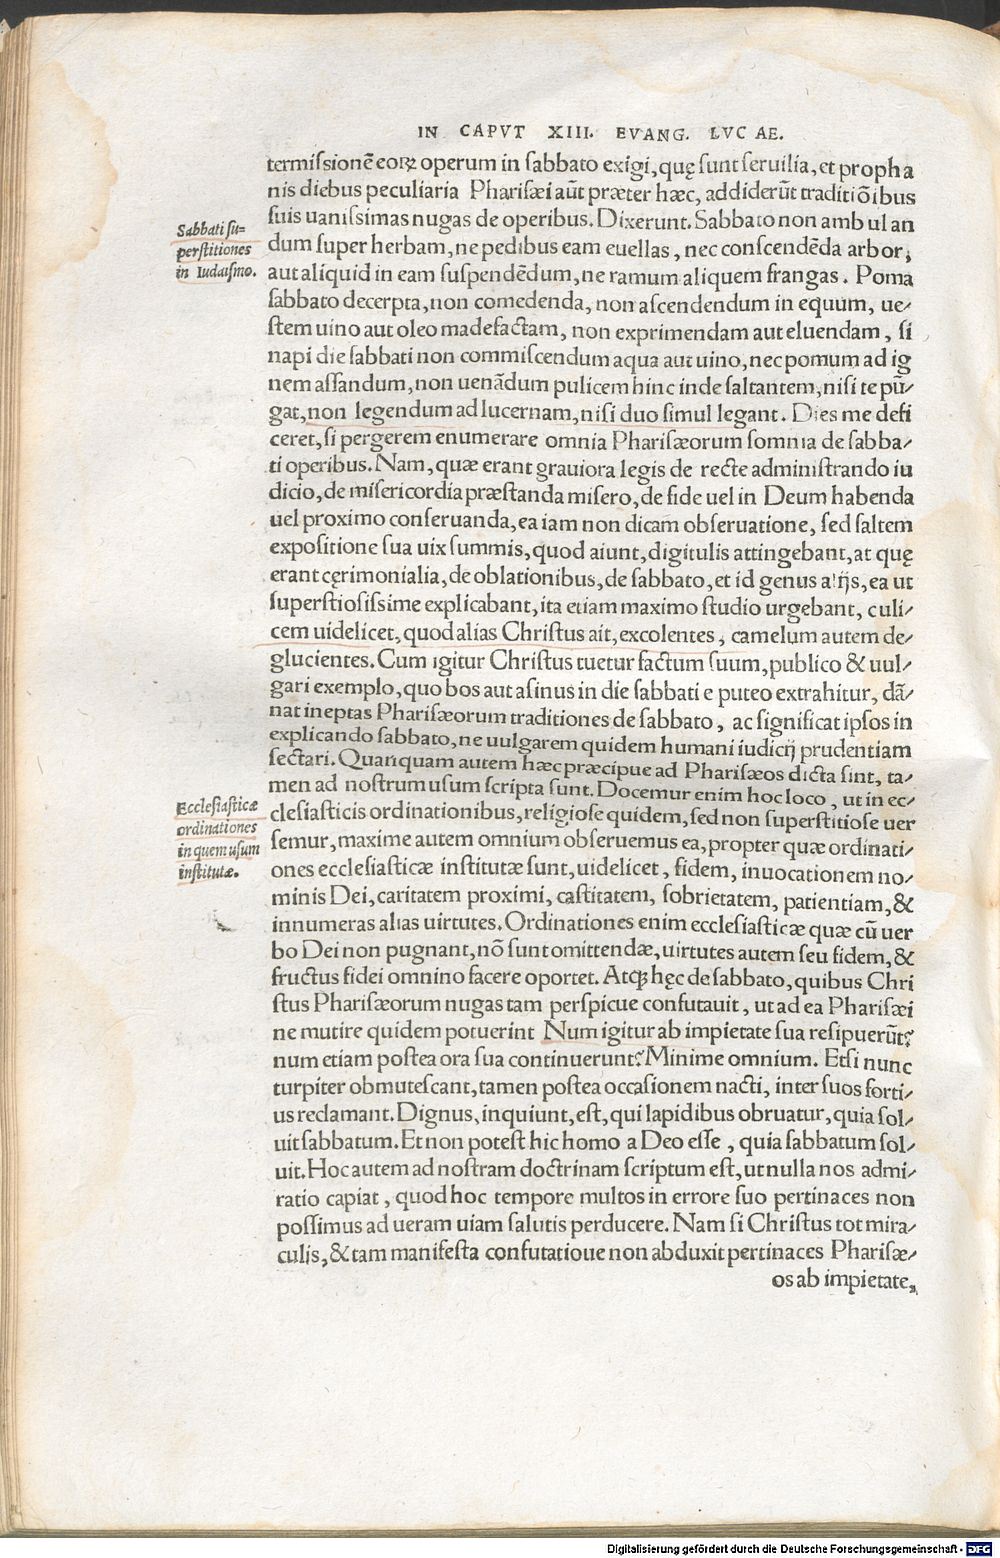 IN CAPVT XIII. EVANG. LVCAE.
termissionē eoꝝ operum in sabbato exigi, quę sunt seruilia, et propha
nis diebus peculiaria Pharisæi aūt præter hæc, addiderūt traditiōibus
suis uanissimas nugas de operibus. Dixerunt. Sabbato non ambulan
dum super herbam, ne pedibus eam euellas, nec conscendēda arbor,
aut aliquid in eam suspendēdum, ne ramum aliquem frangas. Poma
sabbato decerpta, non comedenda, non ascendendum in equum, ue-
stem uino aut oleo madefactam, non exprimendam aut eluendam, si
napi die sabbati non commiscendum aqua aut uino, nec pomum ad ig
nem assandum, non uenādum pulicem hinc inde saltantem, nisi te pū-
gat, non legendum ad lucernam, nisi duo simul legant. Dies me defi
ceret, si pergerem enumerare omnia Pharisæorum somnia de sabba-
ti operibus. Nam, quæ erant grauiora legis de recte administrando iu
dicio, de misericordia præstanda misero, de fide uel in Deum habenda
uel proximo conseruanda, ea iam non dicam obseruatione, sed saltem
expositione sua uix summis, quod aiunt, digitulis attingebant, at quę
erant cęrimonialia, de oblationibus, de sabbato, et id genus alijs, ea ut
superstiosissime explicabant, ita etiam maximo studio urgebant, culi-
cem uidelicet, quod alias Christus ait, excolentes, camelum autem de-
glucientes. Cum igitur Christus tuetur factum suum, publico & uul-
gari exemplo, quo bos aut asinus in die sabbati e puteo extrahitur, dā-
nat ineptas Pharisæorum traditiones de sabbato, ac significat ipsos in
explicando sabbato, ne uulgarem quidem humani iudicij prudentiam
sectari. Quanquam autem hæc præcipue ad Pharisæos dicta sint, ta-
men ad nostrum usum scripta sunt. Docemur enim hoc loco, ut in ec-
clesiasticis ordinationibus, religiose quidem, sed non superstitiose uer
semur, maxime autem omnium obseruemus ea, propter quæ ordinati-
ones ecclesiasticæ institutæ sunt, uidelicet, fidem, inuocationem no-
minis Dei, caritatem proximi, castitatem, sobrietatem, patientiam, &
innumeras alias uirtutes. Ordinationes enim ecclesiasticæ quæ cū uer
bo Dei non pugnant, nō sunt omittendæ, uirtutes autem seu fidem, &
fructus fidei omnino facere oportet. Atqꝫ hęc de sabbato, quibus Chri
stus Pharisæorum nugas tam perspicue confutauit, ut ad ea Pharisæi
ne mutire quidem potuerint Num igitur ab impietate sua resipuerūt?
num etiam postea ora sua continuerunt? Minime omnium. Etsi nunc
turpiter obmutescant, tamen postea occasionem nacti, inter suos forti-
us reclamant. Dignus, inquiunt, est, qui lapidibus obruatur, quia sol-
uit sabbatum. Et non potest hic homo a Deo esse, quia sabbatum sol-
uit. Hoc autem ad nostram doctrinam scriptum est, ut nulla nos admi-
ratio capiat, quod hoc tempore multos in errore suo pertinaces non
possimus ad ueram uiam salutis perducere. Nam si Christus tot mira-
culis, & tam manifesta confutatioue non abduxit pertinaces Pharisæ-
os ab impietate,
Sabbati su=
perstitiones
in Iudaismo.
Ecclesiasticæ
ordinationes
in quem usum
institutæ.
Digitalisierung gefördert durch die Deutsche Forschungsgemeinschaft - DFG